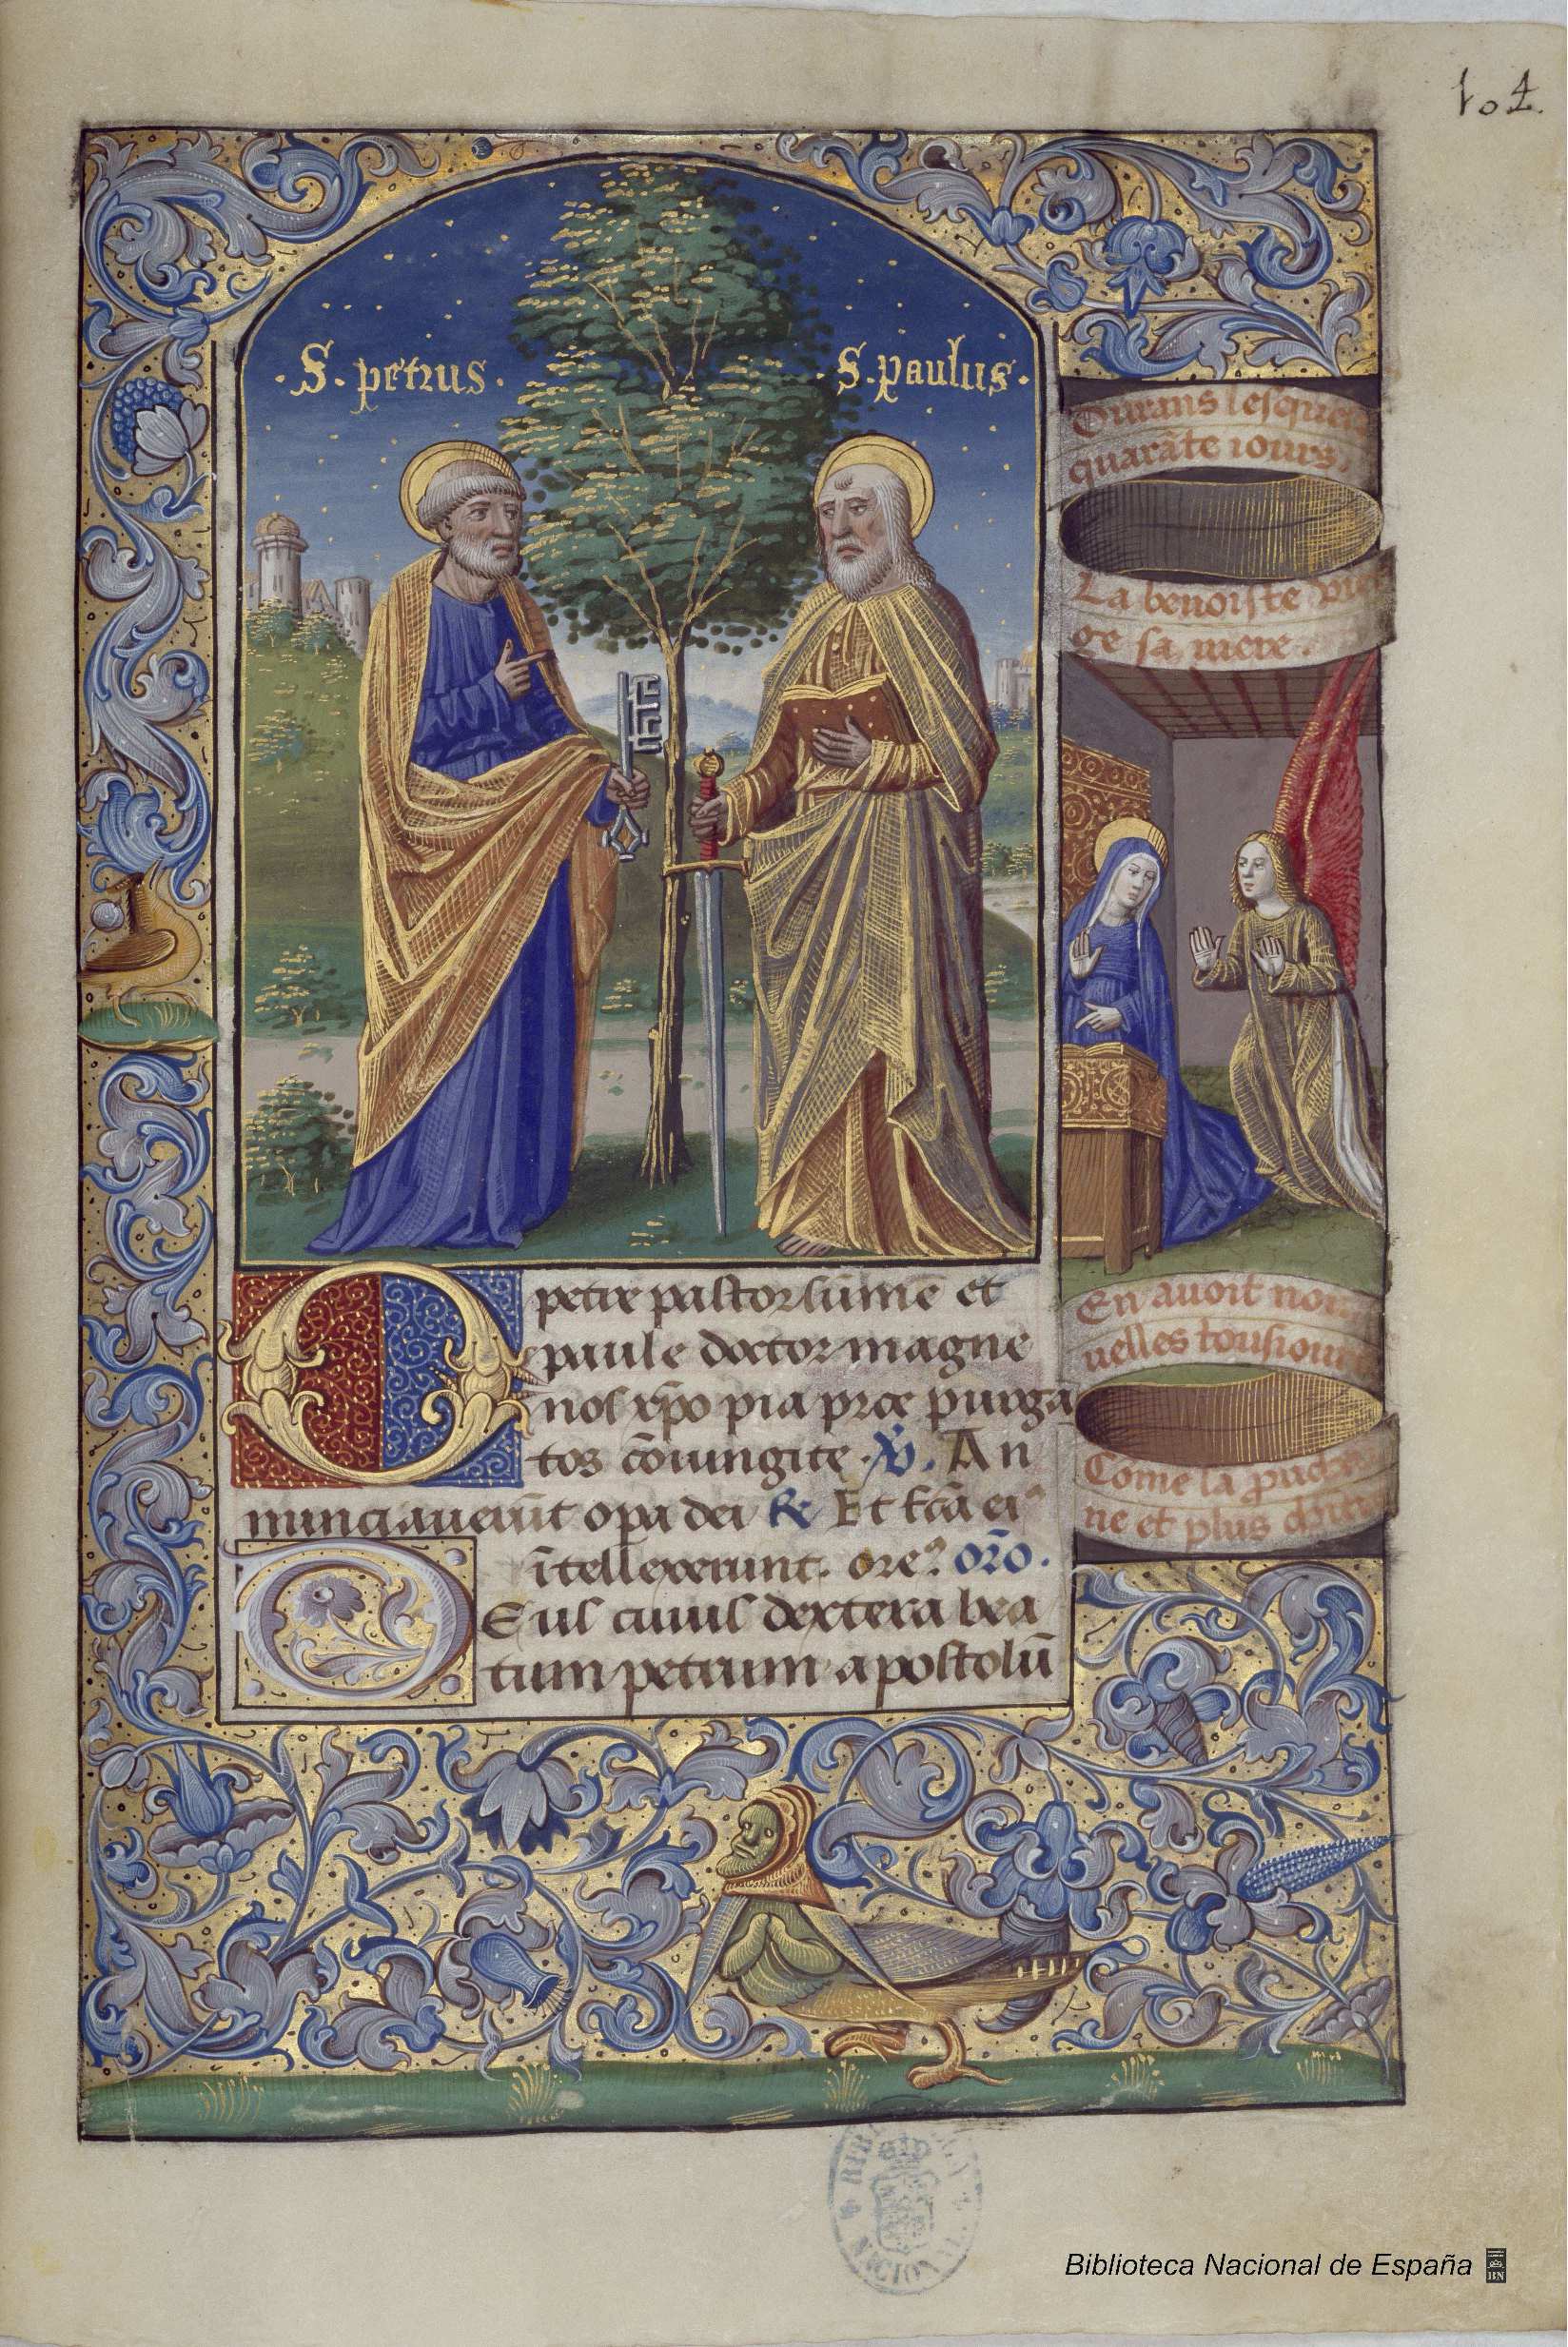 101.
·S·petrus·
·S·paulus·
Durans lesquelz
quarãte iours,
La benoiste vier
ge sa mere.
En auoit nou
uelles tousiours
Côme la
ne et plus
petre pastor lûmê et
paule doctor magne
nos xp̃o pia prce purga
tos cõiungite. ℣. An
nunciauerũt opa dei ℟ Et fca ei⁹
ĩtellexerunt. ore? orõ.
Eus cuius dextera bea
tum petrum apostolũ
NACIONAL
Biblioteca Nacional de España
BN